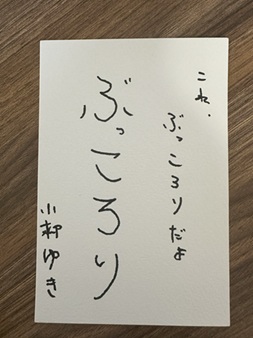 これ.
ぶっころりだよ
ぶっころり
小森ゆき